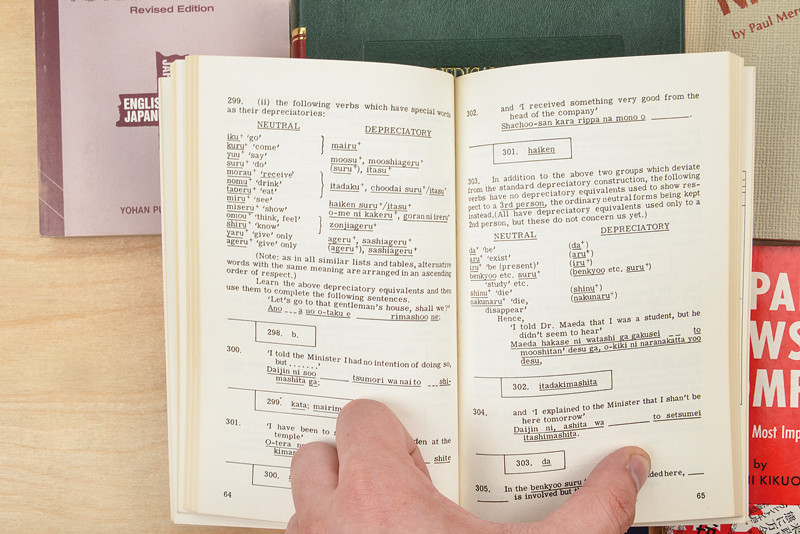 Revised Edition
ENGLISH
JAPAN
YOHAN PU
by Paul Mer
299. (ii) the following verbs which have special words
as their depreciatories:
NEUTRAL DEPRECIATORY
iku⁺ 'go'
kuru⁺ 'come' mairu⁺
yuu⁺ 'say' moosu⁺, mooshiageru⁺
suru⁺ 'do' (suru⁺), itasu⁺
morau⁺ 'receive'
nomu⁺ 'drink' itadaku⁺, choodai suru⁺/itasu⁺
taberu⁺ 'eat'
miru⁺ 'see' haiken suru⁺/itasu⁺
miseru⁺ 'show' o-me ni kakeru⁺, goran ni ireru⁺
omou⁺ 'think, feel'
shiru⁺ 'know' zonjiageru⁺
yaru⁺ 'give' only ageru⁺, sashiageru⁺
ageru⁺ 'give' only (ageru⁺), sashiageru⁺
(Note: as in all similar lists and tables, alternative
words with the same meaning are arranged in an ascending
order of respect.)
Learn the above depreciatory equivalents and then
use them to complete the following sentences.
'Let's go to that gentleman's house, shall we?'
Ano ---a no o-taku e ______ rimashoo ne:
298. b.
300.
'I told the Minister I had no intention of doing so,
but .......'
Daijin ni soo ______ tsumori wa nai to ---shi-
mashita ga:
299. kata; mairim
301.
'I have been to den at the
temple'
O-tera no shite
kimas
300.
64
302.
and 'I received something very good from the
head of the company'
Shachoo-san kara rippa na mono o ______.
301. haiken
303. In addition to the above two groups which deviate
from the standard depreciatory construction, the following
verbs have no depreciatory equivalents used to show res-
pect to a 3rd person, the ordinary neutral forms being kept
instead.(All have depreciatory equivalents used only to a
2nd person, but these do not concern us yet.)
NEUTRAL DEPRECIATORY
da⁺ 'be' (da⁺)
aru⁺ 'exist' (aru⁺)
iru⁺ 'be (present)' (iru⁺)
benkyoo etc. suru⁺ (benkyoo etc. suru⁺)
'study' etc.
shinu⁺ 'die' (shinu⁺)
nakunaru⁺ 'die, (nakunaru⁺)
disappear'
Hence,
'I told Dr. Maeda that I was a student, but he
didn't seem to hear'
Maeda hakase ni watashi ga gakusei -- to
mooshitan' desu ga, o-kiki ni naranakatta yoo
desu,
302. itadakimashita
304.
and 'I explained to the Minister that I shan't be
here tomorrow'
Daijin ni, ashita wa ______ to setsumei
itashimashita.
303. da
305.
In the benkyoo suru ded here, ___
___ is involved but th
65
PA
WS
MP
Most Imp
by
HI KIKUO